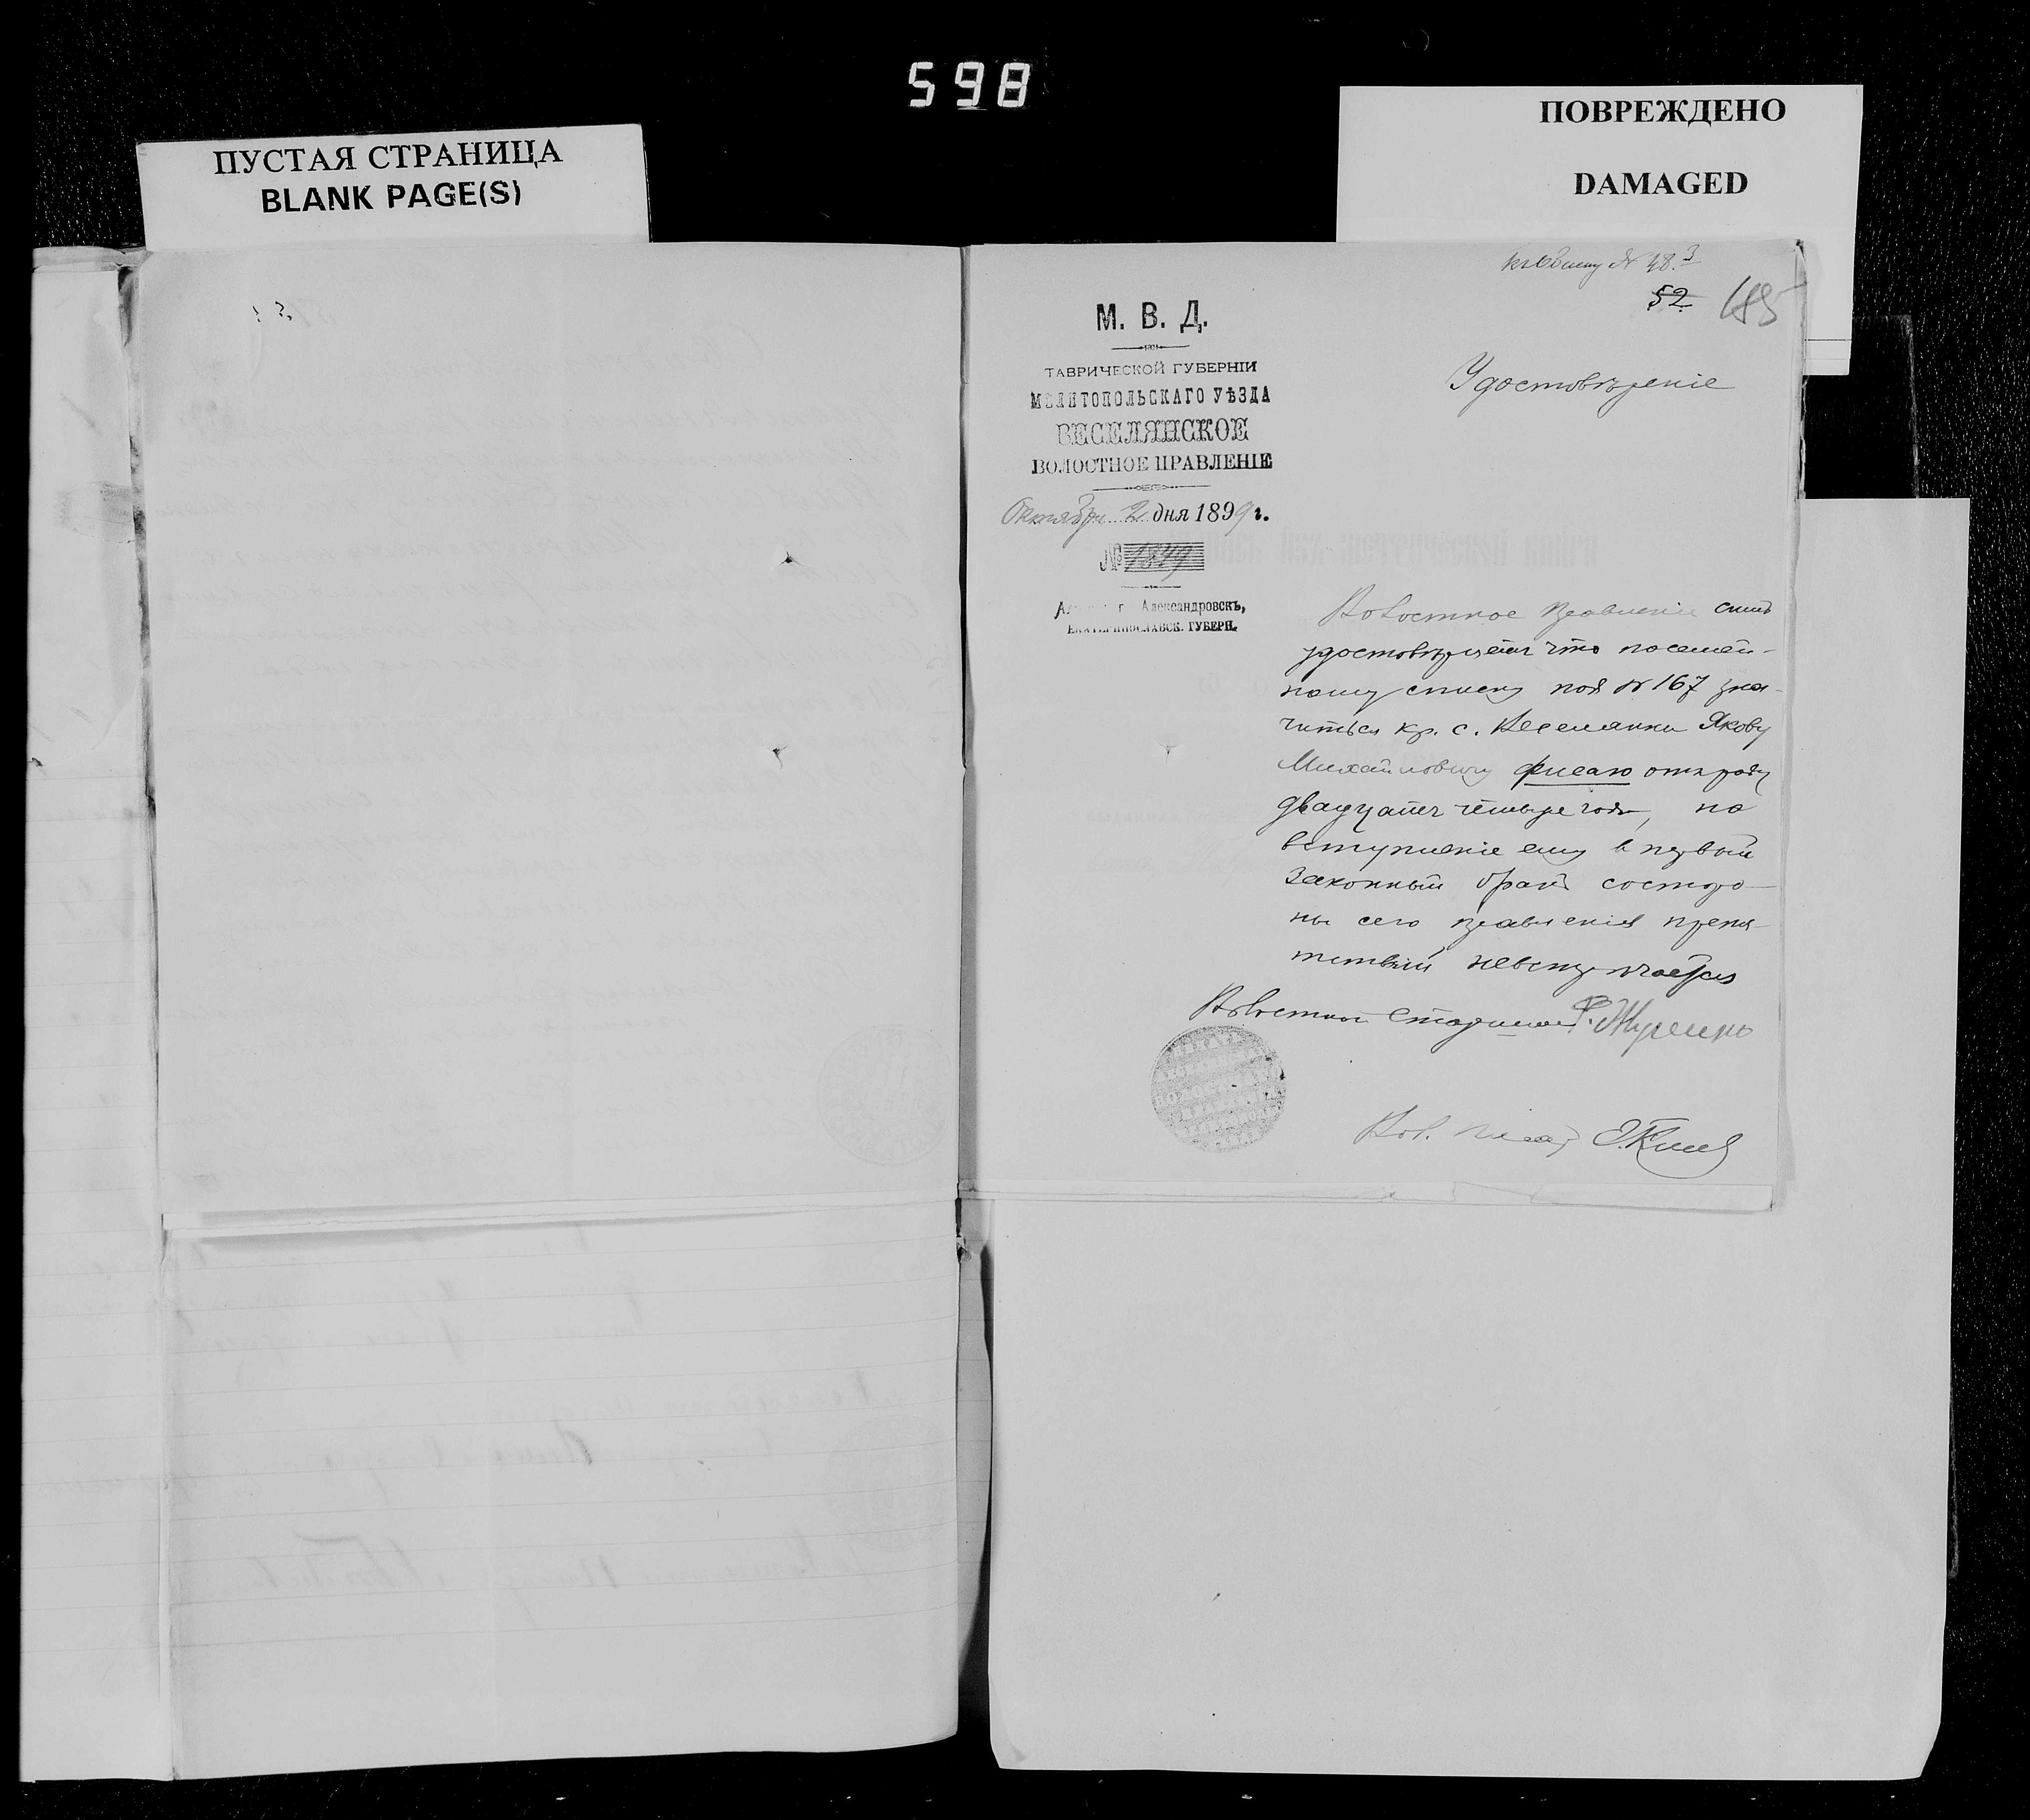 598
ПУСТАЯ СТРАНИЦА
BLANK PAGE(S)
ПОВРЕЖДЕНО
DAMAGED
къ обыску № 48.
52 485
М. В. Д.
ТАВРИЧЕСКОЙ ГУБЕРНІИ
МЕЛИТОПОЛЬСКАГО УѢЗДА
ВЕСЕЛЯНСКОЕ
ВОЛОСТНОЕ ПРАВЛЕНІЕ
Октября 2 дня 1899 г.
№ 1849
г. Александровскъ,
ЕКАТЕРИНОСЛАВСК. ГУБЕРН.
Удостовѣреніе
Волостное правленіе симъ
удостовѣряетъ что по семей-
ному списку под № 167 зна-
читься кр. с. Веселянки Якову
Михайловичу Фисаю отъ роду
двадцать четыре года, на
вступленіе ему в первый
законный бракъ со сторо-
ны сего правленія препя-
тствій невстречается
Волостной Старшина
Вол. писарь